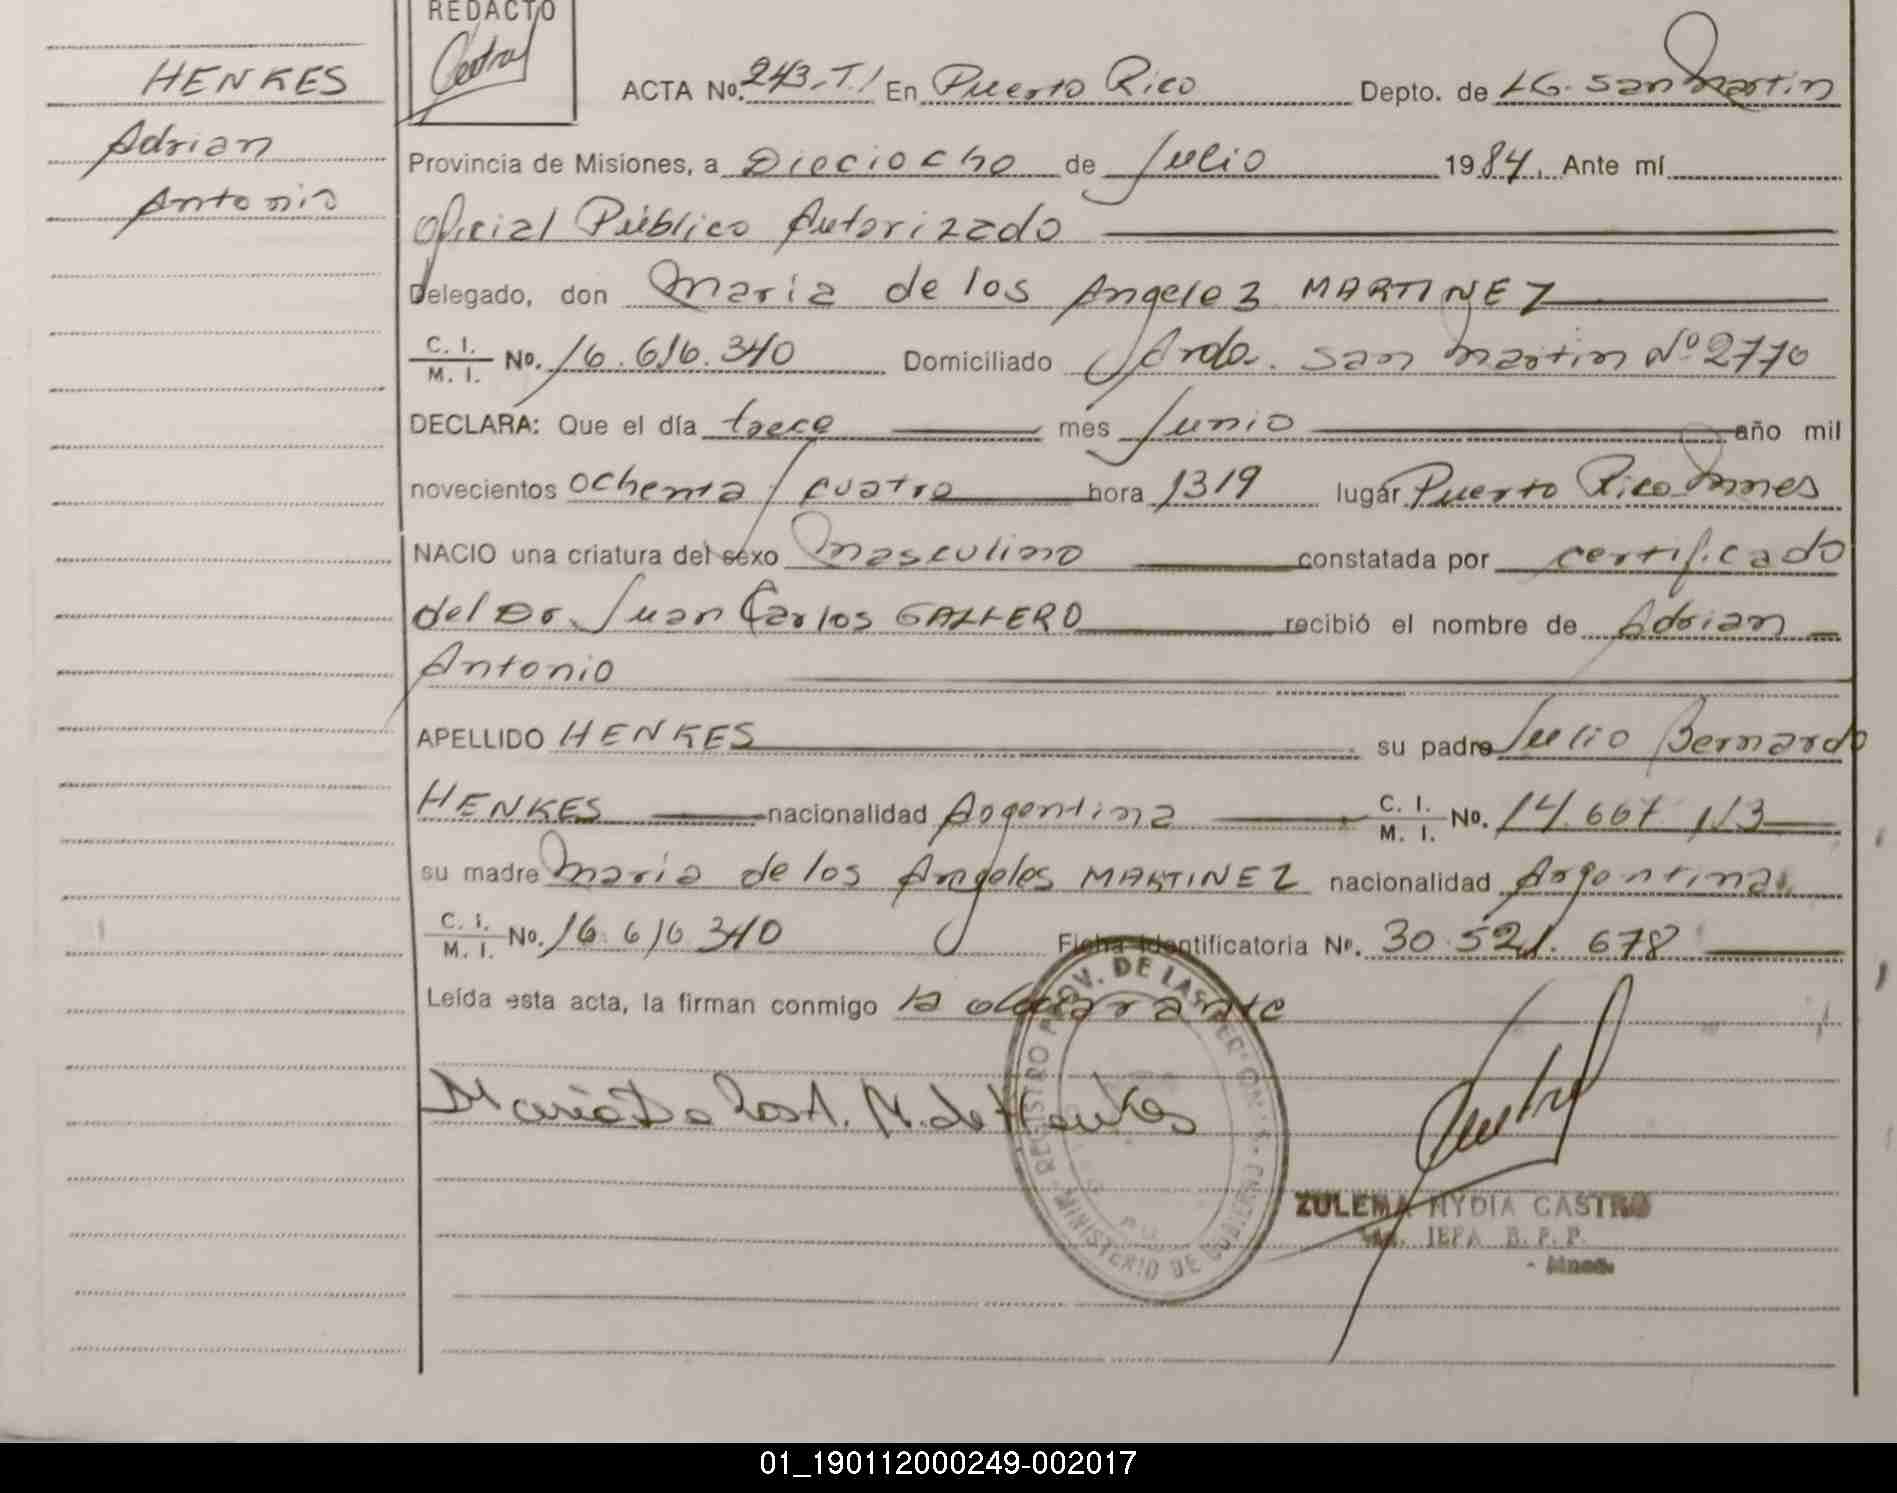 HENKES
Adrian
Antonio
REDACTO
ACTA No. 243.T.I En Puerto Rico Depto. de LG. San Martin
Provincia de Misiones, a Dieciocho de Julio 1984, Ante mí
Oficial Público Autorizado
Delegado, don Maria de los Angeles MARTINEZ
C. I. / M. I. No. 16.616.340 Domiciliado Avda. San Martin Nº 2770
DECLARA: Que el día trece mes Junio año mil
novecientos ochenta y cuatro hora 1319 lugar Puerto Rico Mnes
NACIO una criatura del sexo masculino constatada por certificado
del Dr. Juan Carlos GALLERO recibió el nombre de Adrian
Antonio
APELLIDO HENKES su padre Julio Bernardo
HENKES nacionalidad Argentina C. I. / M. I. No. 14.667 113
su madre Maria de los Angeles MARTINEZ nacionalidad Argentina
C. I. / M. I. No. 16.616 340 Ficha Identificatoria Nº. 30.521.678
Leída esta acta, la firman conmigo la declarante
Maria De los A. M. de Henkes
REGISTRO PROV. DE LAS PER
MINISTERIO DE GOBIERNO
ZULEMA NYDIA CASTRO
JEFA
01_190112000249-002017